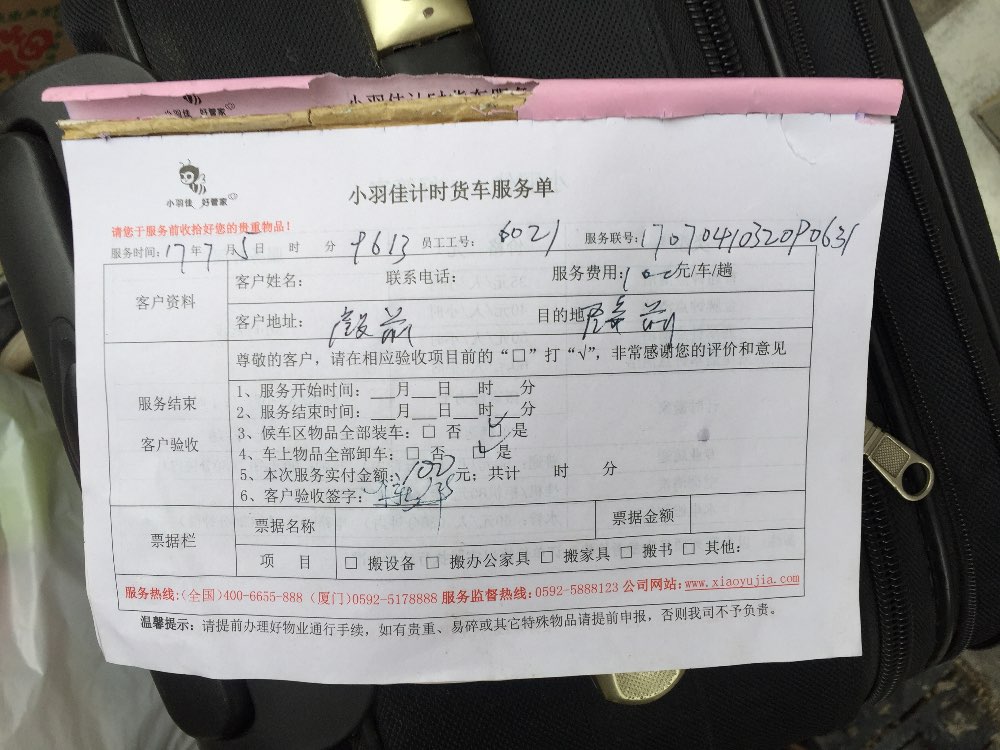 小羽佳 好管家
小羽佳计时货车服务
小羽佳 好管家
小羽佳计时货车服务单
请您于服务前收拾好您的贵重物品！
服务时间：17年7月5日 时 分 9613 员工工号：6021 服务联号：1707041032090631
客户资料
客户姓名： 联系电话： 服务费用：100元/车/趟
客户地址： 殿前 目的地 殿前
尊敬的客户，请在相应验收项目前的“□”打“√”，非常感谢您的评价和意见
服务结束
客户验收
1、服务开始时间：___月___日___时___分
2、服务结束时间：___月___日___时___分
3、候车区物品全部装车：□ 否 □ 是
4、车上物品全部卸车：□ 否 □ 是
5、本次服务实付金额：100元；共计 时 分
6、客户验收签字：
票据栏
票据名称 票据金额
项 目 □ 搬设备 □ 搬办公家具 □ 搬家具 □ 搬书 □ 其他：
服务热线：(全国)400-6655-888 (厦门)0592-5178888 服务监督热线：0592-5888123 公司网站：www.xiaoyujia.com
温馨提示：请提前办理好物业通行手续，如有贵重、易碎或其它特殊物品请提前申报，否则我司不予负责。